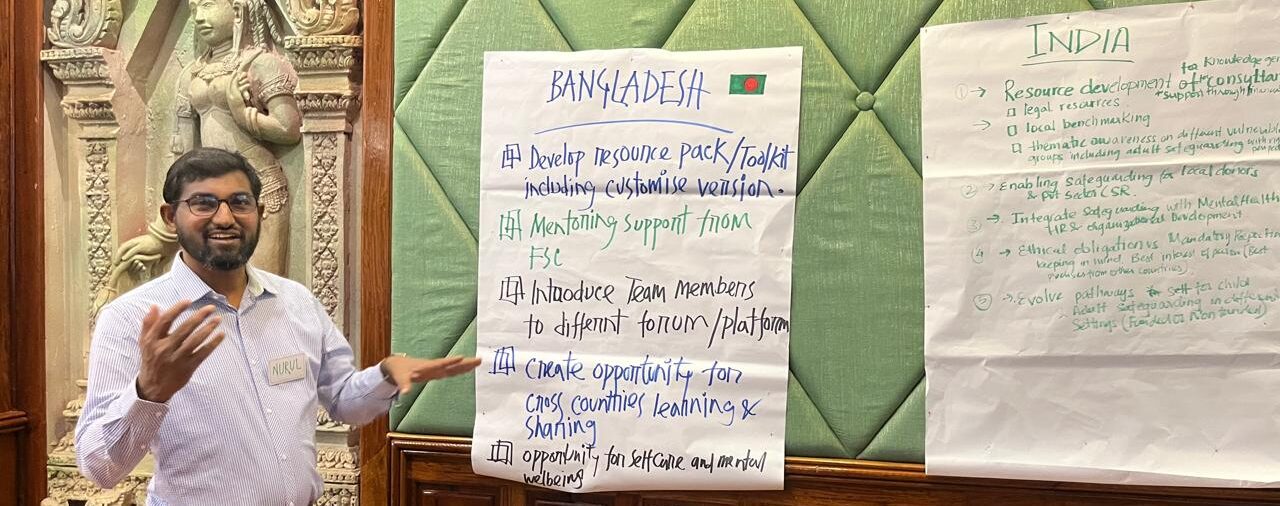 NURUL
BANGLADESH
Develop resource pack/Toolkit
including customise version.
Mentoring support from
FSC
Introduce Team Members
to different forum/platform
Create opportunity for
cross countries learning &
sharing
opportunity for selfcare and mental
wellbeing
INDIA
for Knowledge gen
1 → Resource development of consulta
+support through financial
legal resources.
→ local benchmarking
thematic awareness on different vulnerable
groups including adult safeguarding with
2 → Enabling safeguarding for local donors
& Pvt Sector CSR
3 → Integrate Safeguarding with Mental Health
HR & organizational Development
4 → Ethical obligation vs Mandatory Reporting
keeping in mind, Best interest of person (Best
practices from other countries).
5 → Evolve pathways for child
Adult Safeguarding in different
Settings (Funded or Non funded)